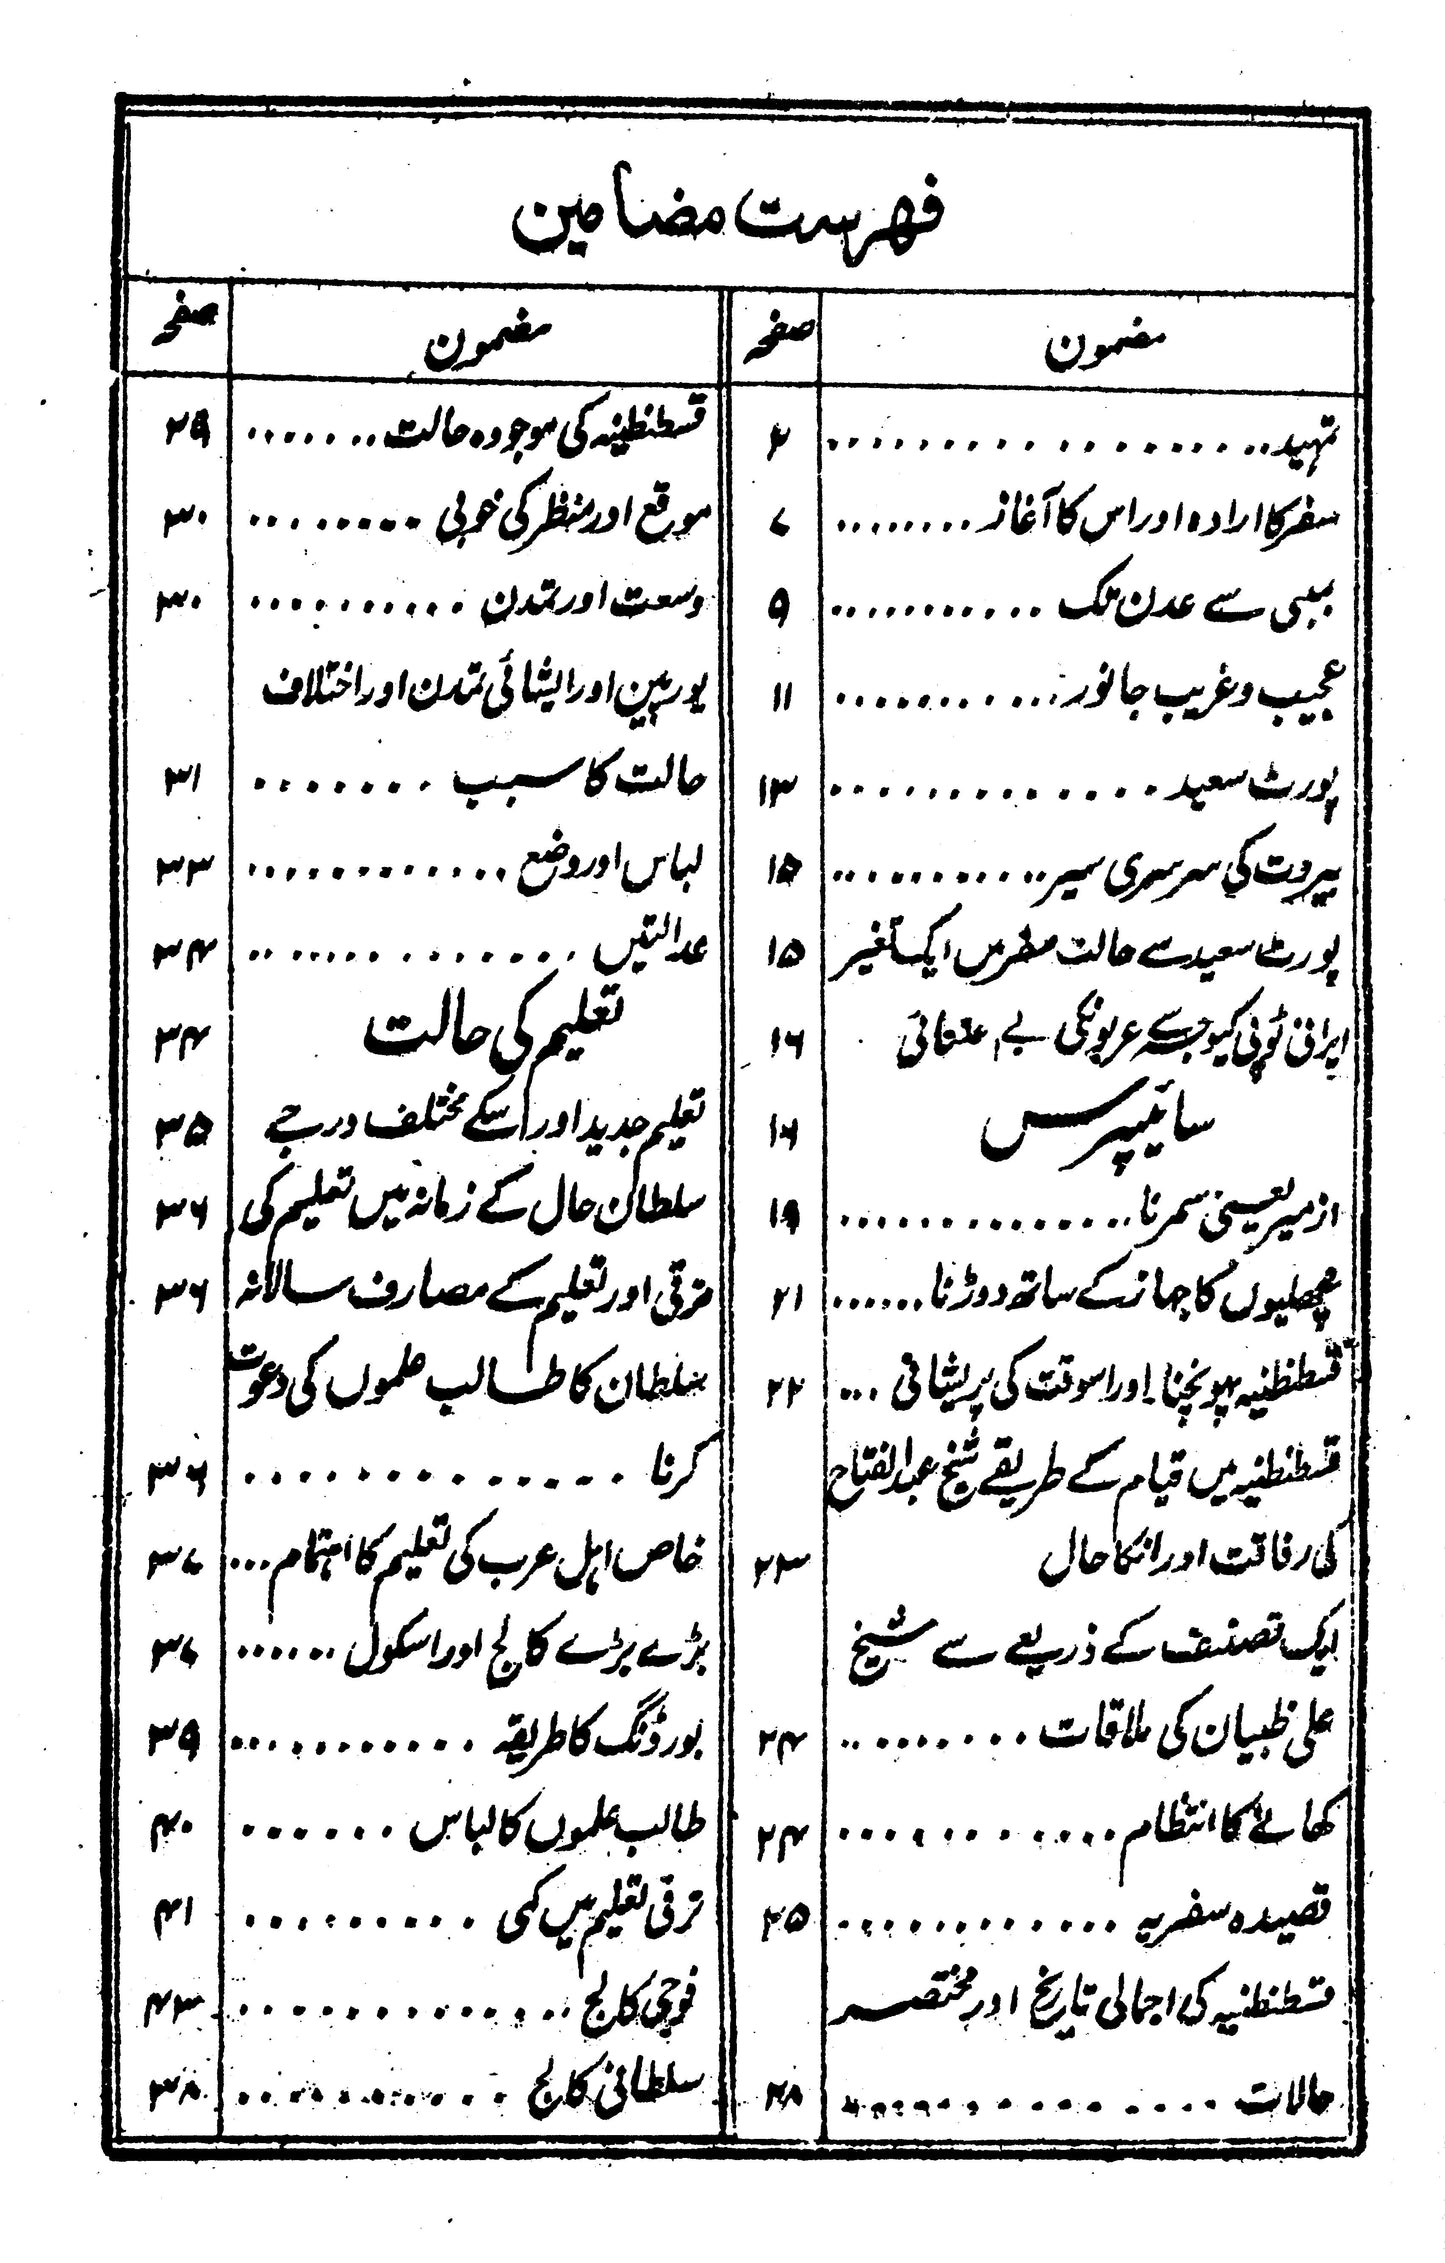 فہرست مضامین
مضمون صفحہ
تمہید.. ۲
سفر کا ارادہ اور اس کا آغاز ۷
بمبئی سے عدن تک ۹
عجیب و غریب جانور ۱۱
پورٹ سعید ۱۳
بیروت کی سرسری سیر ۱۵
پورٹ سعید سے حالت سفر میں ایک تغیر ۱۵
ایرانی ٹوپی کیوجہ سے عربونکی بے اعتنائی ۱۶
سائیپرس ۱۶
ازمیر یعنی سمرنا ۱۹
مچھلیوں کا جہاز کے ساتھ دوڑنا ۲۱
قسطنطنیہ پہونچنا اور اسوقت کی پریشانی ۲۲
قسطنطنیہ میں قیام کے طریقے شیخ عبدالفتاح
کی رفاقت اور انکا حال ۲۳
ایک تصنیف کے ذریعے سے شیخ
علی ظبیان کی ملاقات ۲۴
کھانے کا انتظام ۲۴
قصیدہ سفریہ ۲۵
قسطنطنیہ کی اجمالی تاریخ اور مختصر
حالات ۲۸
مضمون صفحہ
قسطنطنیہ کی موجودہ حالت ۲۹
موقع اور منظر کی خوبی ۳۰
وسعت اور تمدن ۳۰
یورپین اور ایشائی تمدن اور اختلاف
حالت کا سبب ۳۱
لباس اور وضع ۳۳
عدالتیں ۳۴
تعلیم کی حالت ۳۴
تعلیم جدید اور اسکے مختلف درجے ۳۵
سلطان حال کے زمانہ میں تعلیم کی ۳۶
ترقی اور تعلیم کے مصارف سالانہ ۳۶
سلطان کا طالب علموں کی دعوت
کرنا ۳۶
خاص اہل عرب کی تعلیم کا اہتمام ۳۷
بڑے بڑے کالج اور اسکول ۳۷
بورڈنگ کا طریقہ ۳۹
طالب علموں کا لباس ۴۰
ترقی تعلیم میں کمی ۴۱
فوجی کالج ۴۳
سلطانی کالج ۳۸